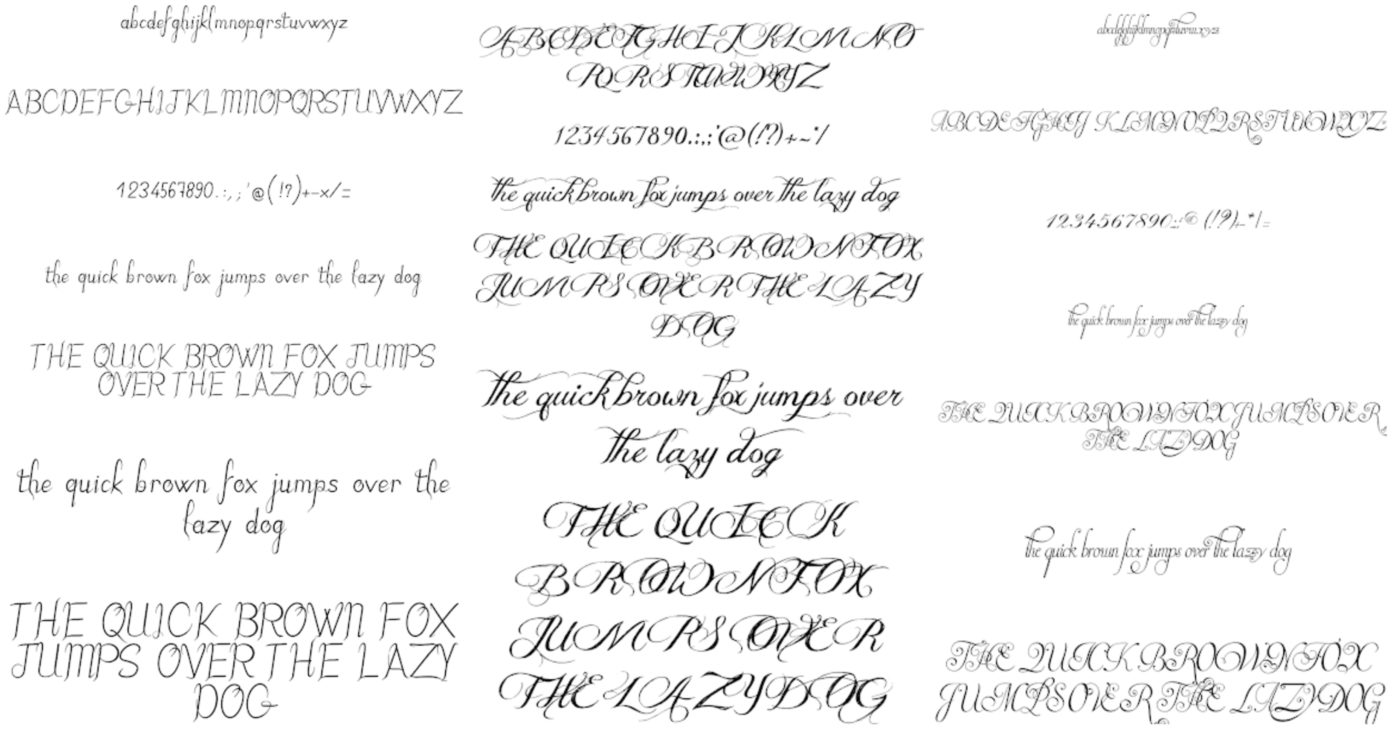 abcdefghijklmnopqrstuvwxyz
ABCDEFGHIJKLMNOPQRSTUVWXYZ
1234567890.:,;'@(!?)+-x/=
the quick brown fox jumps over the lazy dog
THE QUICK BROWN FOX JUMPS
OVER THE LAZY DOG
the quick brown fox jumps over the
lazy dog
THE QUICK BROWN FOX
JUMPS OVER THE LAZY
DOG
ABCDEFGHIJKLMNO
PQRSTUVWXYZ
1234567890.:,;'@(!?)+-*/
the quick brown fox jumps over the lazy dog
THE QUICK BROWN FOX
JUMPS OVER THE LAZY
DOG
the quick brown fox jumps over
the lazy dog
THE QUICK
BROWN FOX
JUMPS OVER
THE LAZY DOG
abcdefghijklmnopqrstuvwxyz
ABCDEFGHIJKLMNOPQRSTUVWXYZ
1234567890.:;@(!?)-*/=
the quick brown fox jumps over the lazy dog
THE QUICK BROWN FOX JUMPS OVER
THE LAZY DOG
the quick brown fox jumps over the lazy dog
THE QUICK BROWN FOX
JUMPS OVER THE LAZY DOG